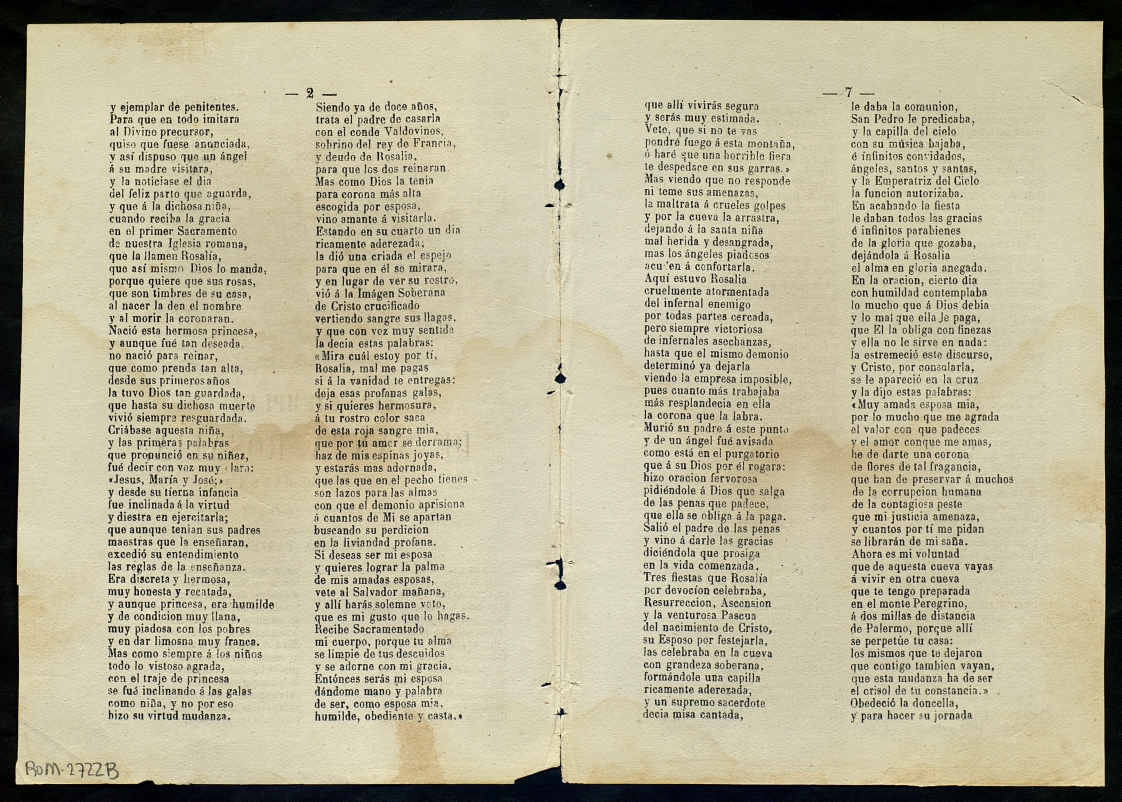 — 2 —
y ejemplar de penitentes.
Para que en todo imitara
al Divino precursor,
quiso que fuese anunciada,
y así dispuso que un ángel
á su madre visitara,
y la noticiase el dia
del feliz parto que aguarda,
y que á la dichosa niña,
cuando reciba la gracia
en el primer Sacramento
de nuestra Iglesia romana,
que la llamen Rosalía,
que así mismo Dios lo manda,
porque quiere que sus rosas,
que son timbres de su casa,
al nacer la den el nombre
y al morir la coronaran.
Nació esta hermosa princesa,
y aunque fué tan deseada,
no nació para reinar,
que como prenda tan alta,
desde sus primeros años
la tuvo Dios tan guardada,
que hasta su dichosa muerte
vivió siempre resguardada.
Criábase aquesta niña,
y las primeras palabras
que pronunció en su niñez,
fué decir con voz muy clara:
«Jesus, María y José;»
y desde su tierna infancia
fue inclinada á la virtud
y diestra en ejercitarla;
que aunque tenian sus padres
maestras que la enseñaran,
excedió su entendimiento
las reglas de la enseñanza.
Era discreta y hermosa,
muy honesta y recatada,
y aunque princesa, era humilde
y de condicion muy llana,
muy piadosa con los pobres
y en dar limosna muy franca.
Mas como siempre á los niños
todo lo vistoso agrada,
con el traje de princesa
se fué inclinando á las galas
como niña, y no por eso
hizo su virtud mudanza.
Siendo ya de doce años,
trata el padre de casarla
con el conde Valdovinos,
sobrino del rey de Francia,
y deudo de Rosalia,
para que los dos reinaran.
Mas como Dios la tenia
para corona más alta
escogida por esposa,
vino amante á visitarla.
Estando en su cuarto un dia
ricamente aderezada,
la dió una criada el espejo
para que en él se mirara,
y en lugar de ver su rostro,
vió á la Imágen Soberana
de Cristo crucificado
vertiendo sangre sus llagas,
y que con voz muy sentida
la decia estas palabras:
«Mira cuál estoy por tí,
Rosalia, mal me pagas
si á la vanidad te entregas:
deja esas profanas galas,
y si quieres hermosura,
á tu rostro color saca
de esta roja sangre mia,
que por tú amor se derrama;
haz de mis espinas joyas,
y estarás mas adornada,
que las que en el pecho tienes
son lazos para las almas
con que el demonio aprisiona
á cuantos de Mi se apartan
buscando su perdicion
en la liviandad profana.
Si deseas ser mi esposa
y quieres lograr la palma
de mis amadas esposas,
vete al Salvador mañana,
y allí barás solemne voto,
que es mi gusto que lo hagas.
Recibe Sacramentado
mi cuerpo, porque tu alma
se limpie de tus descuidos
y se adorne con mi gracia.
Entónces serás mi esposa
dándome mano y palabra
de ser, como esposa mia,
humilde, obediente y casta.»
— 7 —
que allí vivirás segura
y serás muy estimada.
Vete, que si no te vas
pondré fuego á esta montaña,
ó haré que una horrible fiera
te despedace en sus garras.»
Mas viendo que no responde
ni teme sus amenazas,
la maltrata á crueles golpes
y por la cueva la arrastra,
dejando á la santa niña
mal herida y desangrada,
mas los ángeles piadosos
acuden á confortarla.
Aquí estuvo Rosalia
cruelmente atormentada
del infernal enemigo
por todas partes cercada,
pero siempre victoriosa
de infernales asechanzas,
hasta que el mismo demonio
determinó ya dejarla
viendo la empresa imposible,
pues cuanto más trabajaba
más resplandecia en ella
la corona que la labra.
Murió su padre á este punto
y de un ángel fué avisada
como está en el purgatorio
que á su Dios por él rogara:
hizo oracion fervorosa
pidiéndole á Dios que salga
de las penas que padece,
que ella se obliga á la paga.
Salió el padre de las penas
y vino á darle las gracias
diciéndola que prosiga
en la vida comenzada.
Tres fiestas que Rosalía
por devocion celebraba,
Resurreccion, Ascension
y la venturosa Pascua
del nacimiento de Cristo,
su Esposo por festejarla,
las celebraba en la cueva
con grandeza soberana,
formándole una capilla
ricamente aderezada,
y un supremo sacerdote
decia misa cantada,
le daba la comunion,
San Pedro le predicaba,
y la capilla del cielo
con su música bajaba,
é infinitos convidados,
ángeles, santos y santas,
y la Emperatriz del Cielo
la funcion autorizaba.
En acabando la fiesta
le daban todos las gracias
é infinitos parabienes
de la gloria que gozaba,
dejándola á Rosalia
el alma en gloria anegada.
En la oracion, cierto dia
con humildad contemplaba
lo mucho que á Dios debia
y lo mal que ella le paga,
que El la obliga con finezas
y ella no le sirve en nada:
la estremeció este discurso,
y Cristo, por consolarla,
se le apareció en la cruz
y la dijo estas palabras:
«Muy amada esposa mia,
por lo mucho que me agrada
el valor con que padeces
y el amor conque me amas,
he de darte una corona
de flores de tal fragancia,
que han de preservar á muchos
de la corrupcion humana
de la contagiosa peste
que mi justicia amenaza,
y cuantos por tí me pidan
se librarán de mi saña.
Ahora es mi voluntad
que de aquesta cueva vayas
á vivir en otra cueva
que te tengo preparada
en el monte Peregrino,
á dos millas de distancia
de Palermo, porque allí
se perpetúe tu casa:
los mismos que te dejaron
que contigo tambien vayan,
que esta mudanza ha de ser
el crisol de tu constancia.»
Obedeció la doncella,
y para hacer su jornada
ROM-2722B